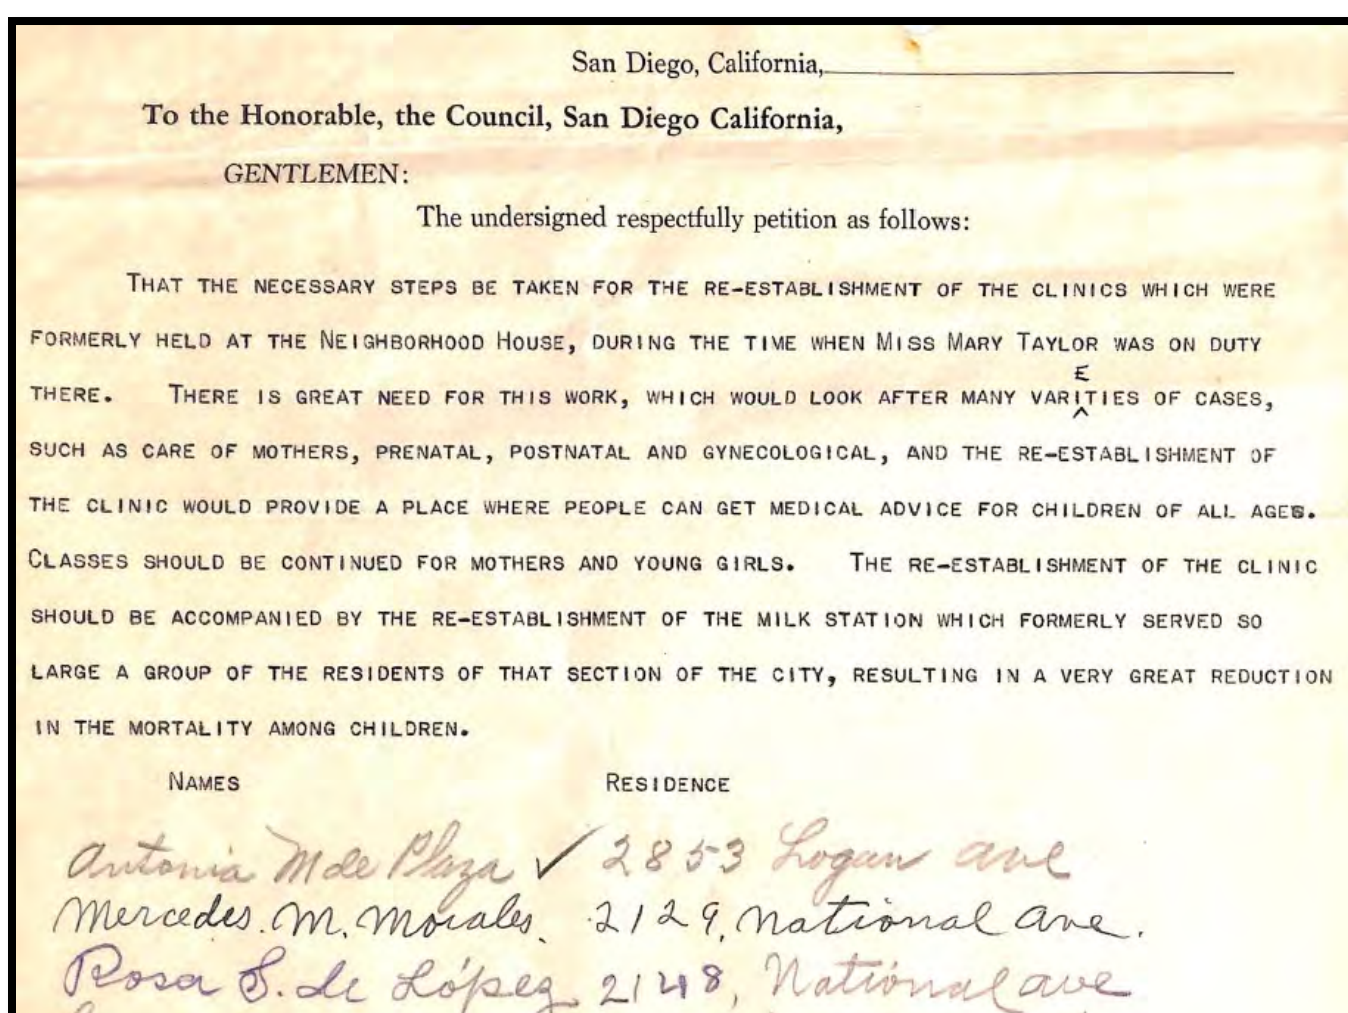 San Diego, California,
To the Honorable, the Council, San Diego California,
GENTLEMEN:
The undersigned respectfully petition as follows:
THAT THE NECESSARY STEPS BE TAKEN FOR THE RE-ESTABLISHMENT OF THE CLINICS WHICH WERE
FORMERLY HELD AT THE NEIGHBORHOOD HOUSE, DURING THE TIME WHEN MISS MARY TAYLOR WAS ON DUTY
E
THERE. THERE IS GREAT NEED FOR THIS WORK, WHICH WOULD LOOK AFTER MANY VARITIES OF CASES,
SUCH AS CARE OF MOTHERS, PRENATAL, POSTNATAL AND GYNECOLOGICAL, AND THE RE-ESTABLISHMENT OF
THE CLINIC WOULD PROVIDE A PLACE WHERE PEOPLE CAN GET MEDICAL ADVICE FOR CHILDREN OF ALL AGES.
CLASSES SHOULD BE CONTINUED FOR MOTHERS AND YOUNG GIRLS. THE RE-ESTABLISHMENT OF THE CLINIC
SHOULD BE ACCOMPANIED BY THE RE-ESTABLISHMENT OF THE MILK STATION WHICH FORMERLY SERVED SO
LARGE A GROUP OF THE RESIDENTS OF THAT SECTION OF THE CITY, RESULTING IN A VERY GREAT REDUCTION
IN THE MORTALITY AMONG CHILDREN.
NAMES RESIDENCE
Antonia M de Plaza ✓ 2853 Logan ave
Mercedes. M. Morales. 2129, National ave.
Rosa S. de López 2148, National ave